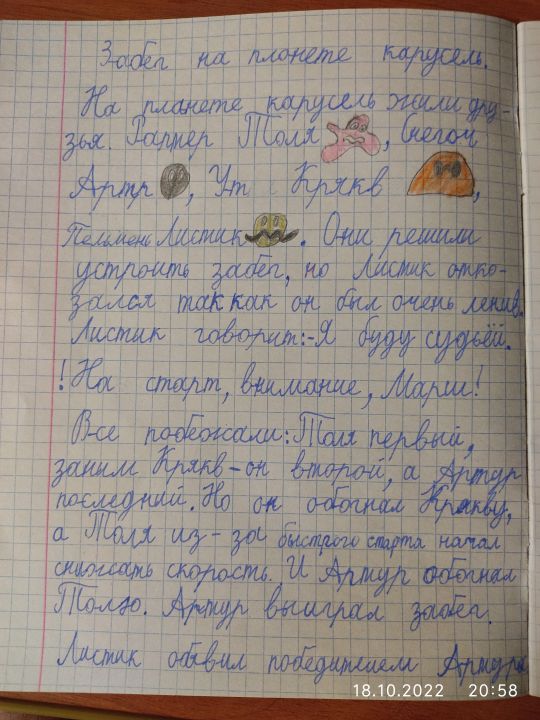 Забег на планете карусель.
На планете карусель жили дру-
зья. Раппер Толя, Снегом
Артр, Ут Крякв,
Пельмень Листик. Они решили
устроить забег, но Листик отко-
зался так как он был очень ленив.
Листик говорит:-Я буду судьёй.
! На старт, внимание, Марш!
Все побежали: Толя первый,
заним Крякв-он второй, а Артур
последний. Но он обогнал Крякву,
а Толя из-за быстрого старта начал
снижать скорость. И Артур обогнал
Толю. Артур выиграл забег.
Листик обявил победителем Артура
18.10.2022 20:58